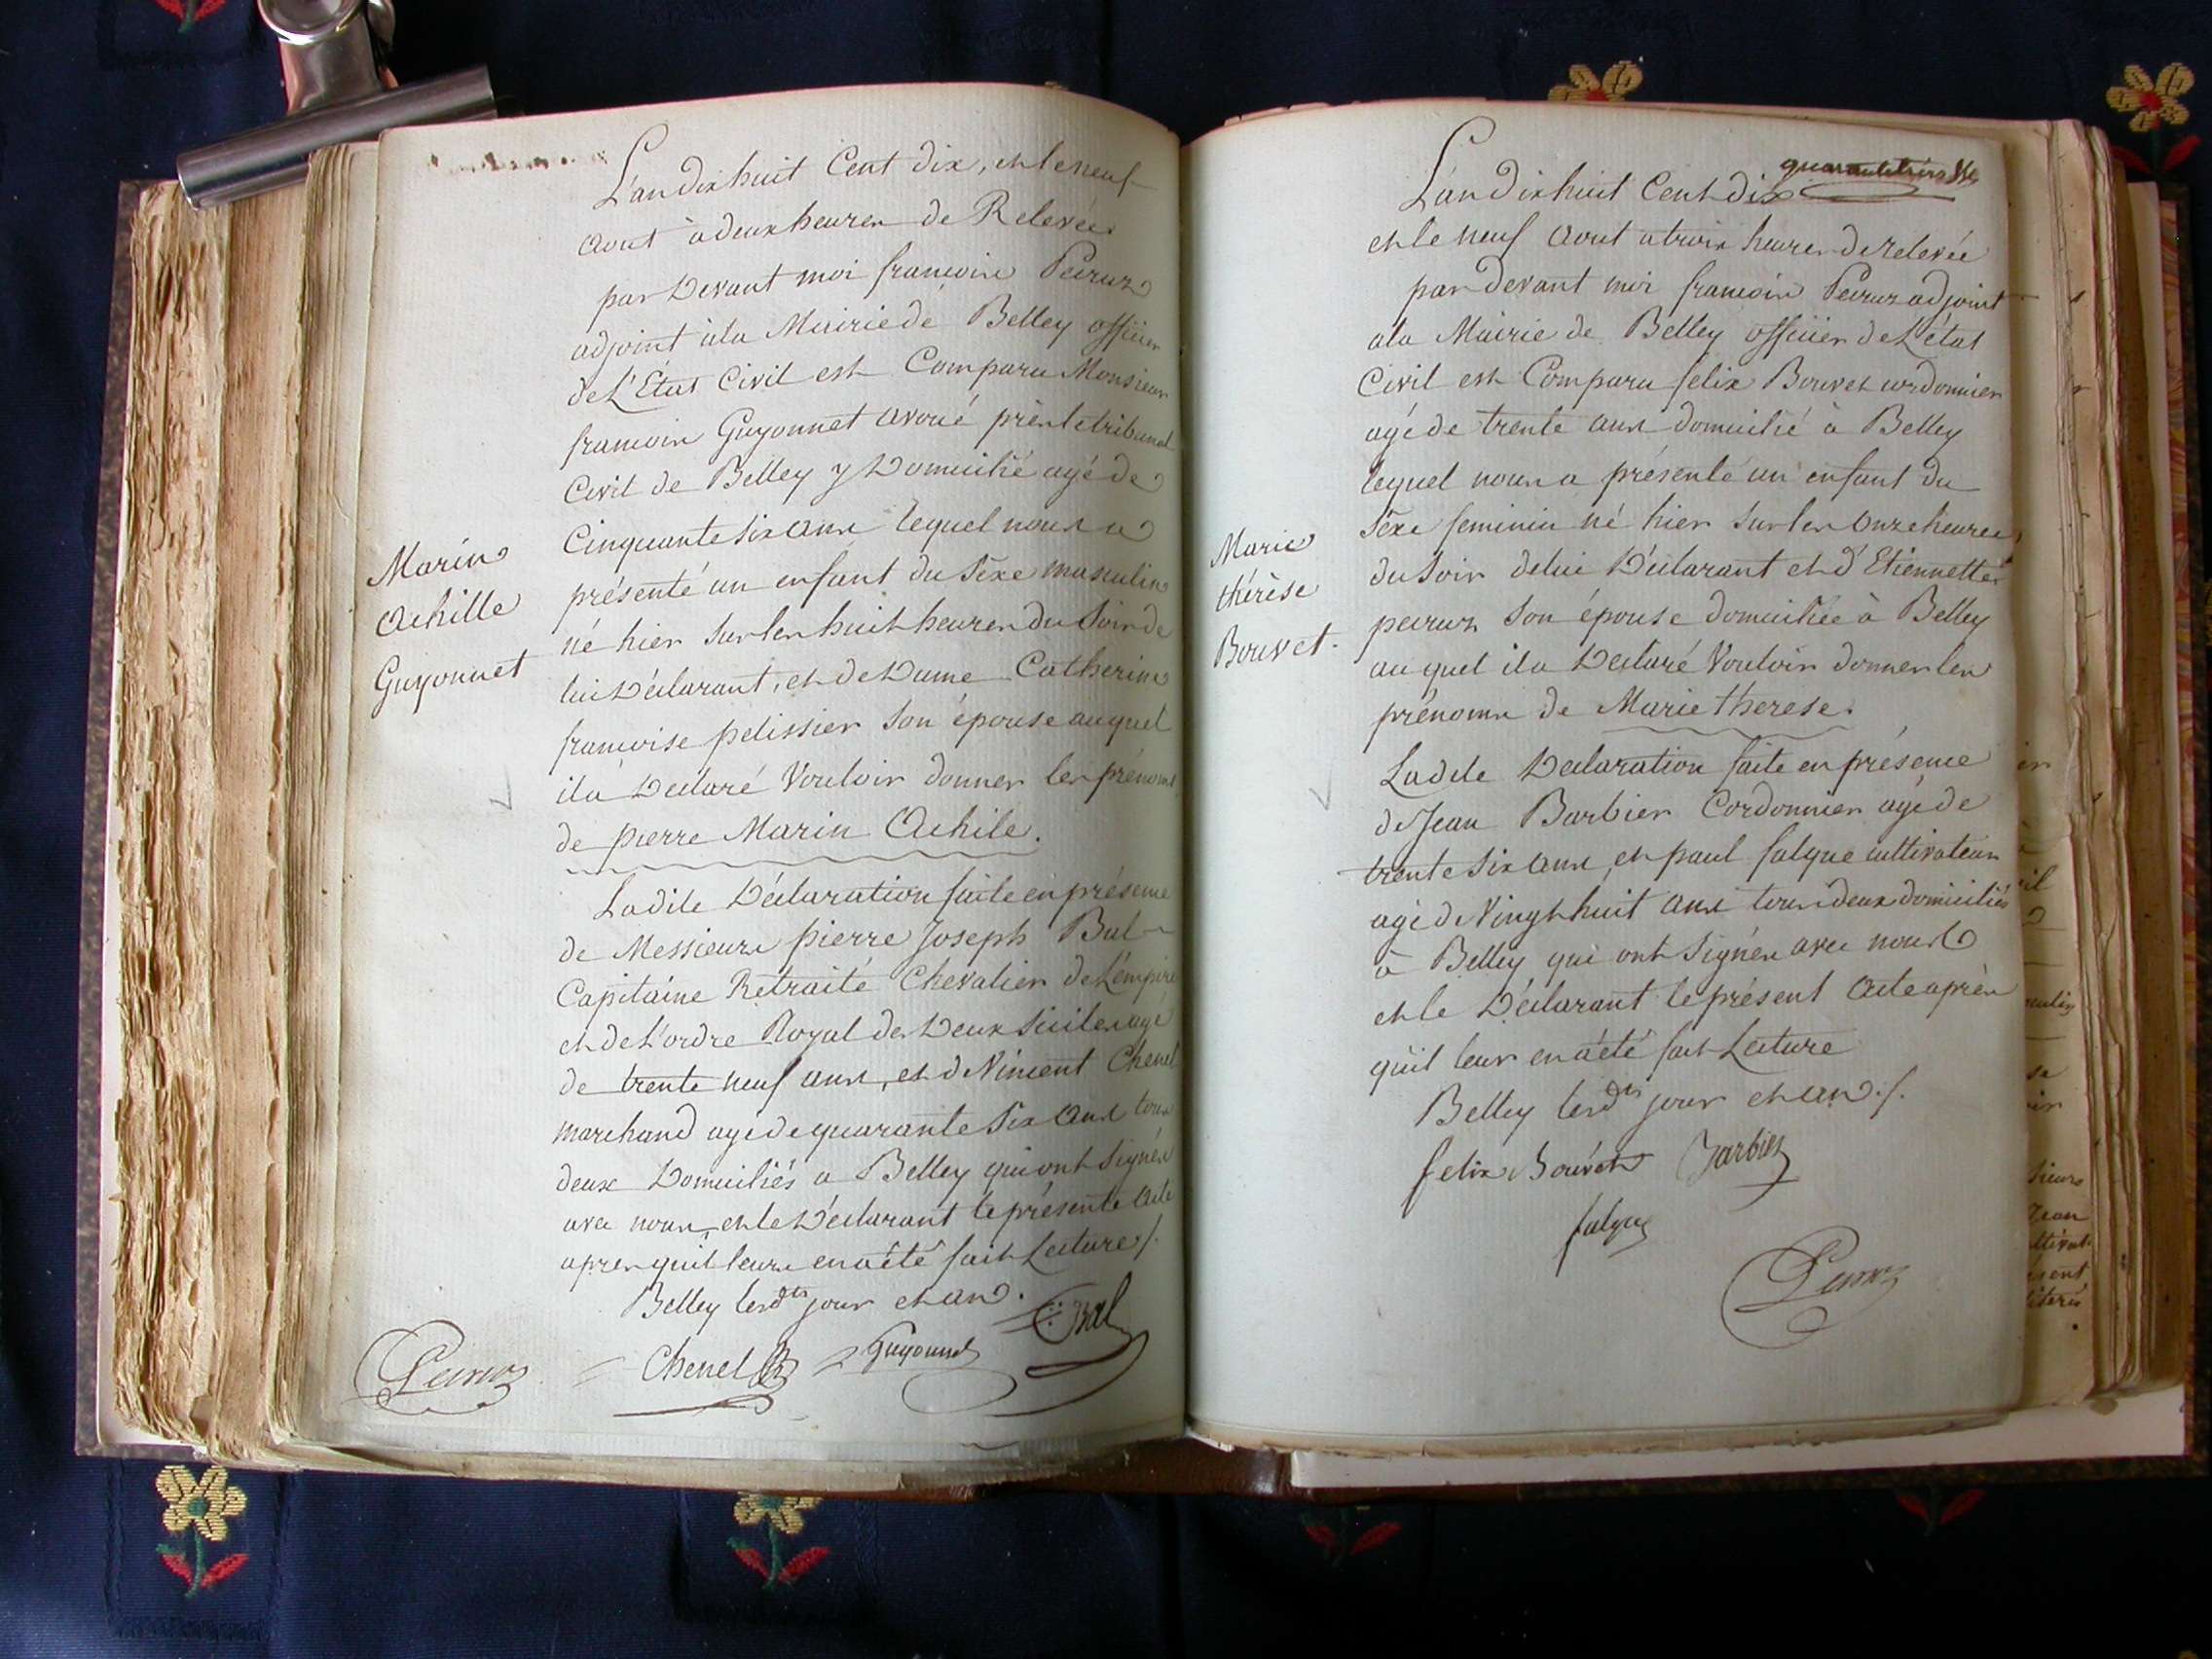 L'an dix huit Cent dix, et le neuf
Aout à deux heures de Relevée
par Devant moi francois Peiruz
adjoint à la Mairie de Belley officier
de L'Etat Civil est Comparu Monsieur
francois Guyonnet avoué près le tribunal
Civil de Belley y Domicilié agé de
Cinquante six ans lequel nous a
présenté un enfant du Sèxe masculin
né hier sur les huit heures du Soir de
lui Déclarant, et de Dame Catherine
francoise pelissier son épouse auquel
il a Déclaré Vouloir donner les prénoms
de pierre Marin Achile.
Marin
Achille
Guyonnet
Ladite Déclaration faite en présence
de Messieurs pierre Joseph Bal
Capitaine Retraité Chevalier de L'empire
et de L'ordre Royal des Deux Siciles agé
de trente neuf ans, et de Vincent Chenel
marchand agé de quarante Six ans tous
deux Domiciliés a Belley qui ont Signés
avec nous, et le Déclarant le présente Acte
apres quil leurs en a été fait Lecture /.
Belley les dts jour et an.
Peiruz Chenel Guyonnet Bal
quarante trois
L'an dix huit Cent dix
et le neuf Aout a trois heures de relevée
par devant moi francois Peiruz adjoint
a la Mairie de Belley officier de L'état
Civil est Comparu felix Bouvet cordonnier
agé de trente ans domicilié à Belley
lequel nous a présenté un enfant du
Sèxe feminin né hier sur les onze heures
du Soir de lui Déclarant et d'Etiennette
peiruz Son épouse domiciliée à Belley
au quel il a Déclaré Vouloir donner les
prénoms de Marie therese.
Marie
thérèse
Bouvet.
Ladite Declaration faite en présence
de Jean Barbier Cordonnier agé de
trente six ans, et paul falque cultivateur
agé de Vingt huit ans tous deux domiciliés
à Belley qui ont Signés avec nous
et le Déclarant le présent Acte après
qu'il leur en a été fait Lecture
Belley les dts jour et an ./.
felix Bouvet Barbier
falque
Peiruz